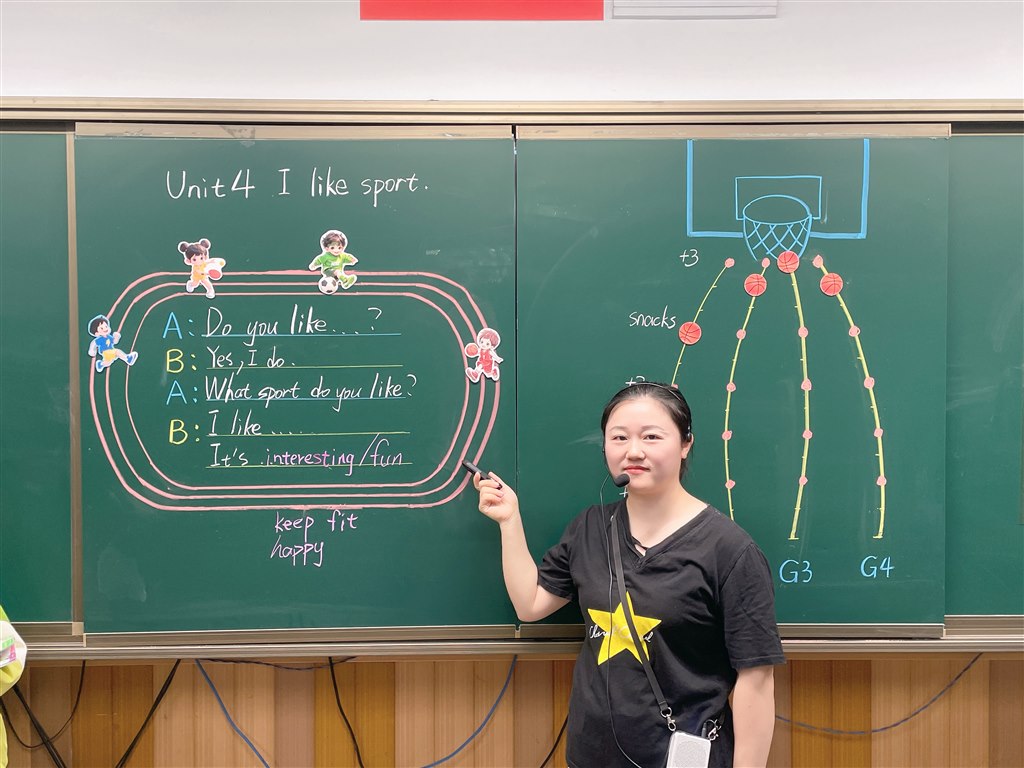 Unit 4 I like sport.
A: Do you like....?
B: Yes, I do.
A: What sport do you like?
B: I like ......
It's interesting/fun
keep fit
happy
+3
snacks
G3
G4